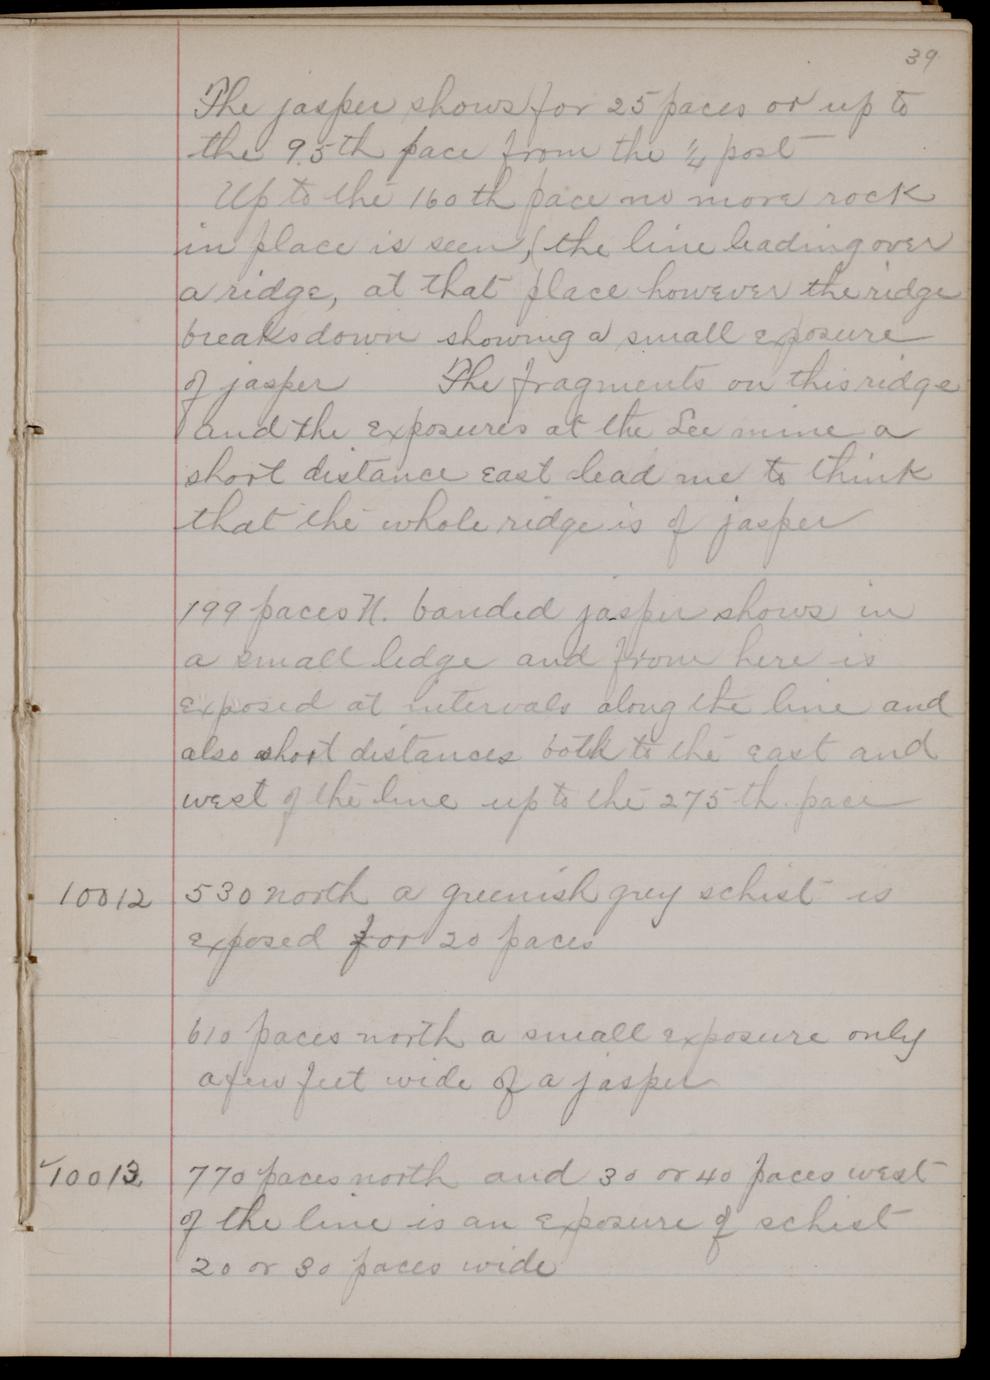 39
The jasper shows for 25 paces or up to
the 95th pace from the 1/4 post
Up to the 160th pace no more rock
in place is seen, (the line leading over
a ridge, at that place however the ridge
breaks down showing a small exposure
of jasper The fragments on this ridge
and the exposures at the Lee mine a
short distance east lead me to think
that the whole ridge is of jasper
199 paces N. banded jasper shows in
a small ledge and from here is
exposed at intervals along the line and
also short distances both to the east and
west of the line up to the 275th pace
10012 530 north a greenish grey schist is
exposed for 20 paces
610 paces north a small exposure only
a few feet wide of a jasper
10013 770 paces north and 30 or 40 paces west
of the line is an exposure of schist
20 or 30 paces wide